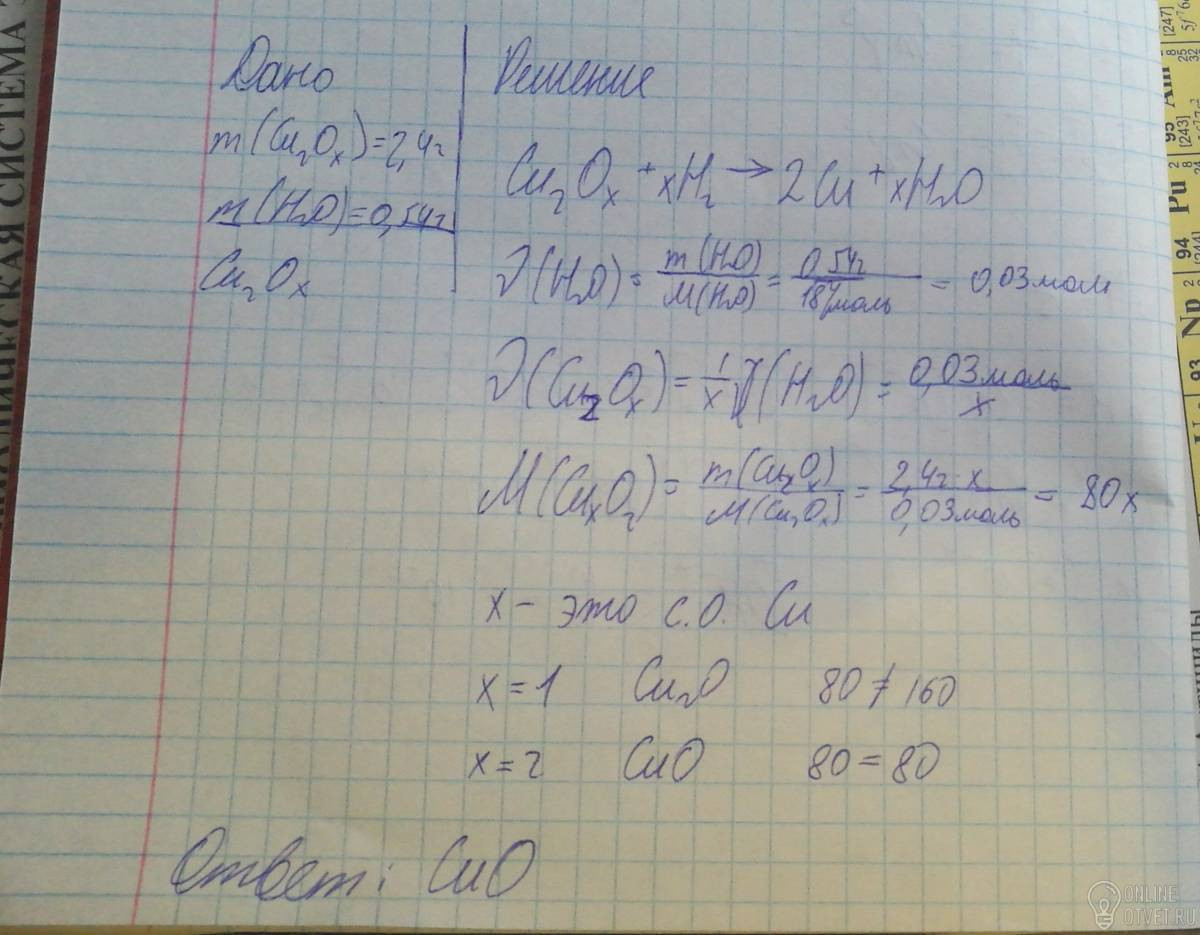 Дано
m(Cu₂Oₓ)=2,4г
m(H₂O)=0,54г
Cu₂Oₓ
Решение
Cu₂Oₓ + xH₂ → 2Cu + xH₂O
ν(H₂O) = m(H₂O)/M(H₂O) = 0,54г/18г/моль = 0,03 моль
ν(Cu₂Oₓ) = 1/x ν(H₂O) = 0,03 моль/x
M(CuₓO₂) = m(Cu₂Oₓ)/M(Cu₂Oₓ) = 2,4г·x/0,03моль = 80x
x – это с.о. Cu
x = 1 Cu₂O 80 ≠ 160
x = 2 CuO 80 = 80
Ответ: CuO
СИСТЕМА
93 Np
94 Pu
95 Am
[243]
[244]
[247]
ONLINE
OTVET.RU